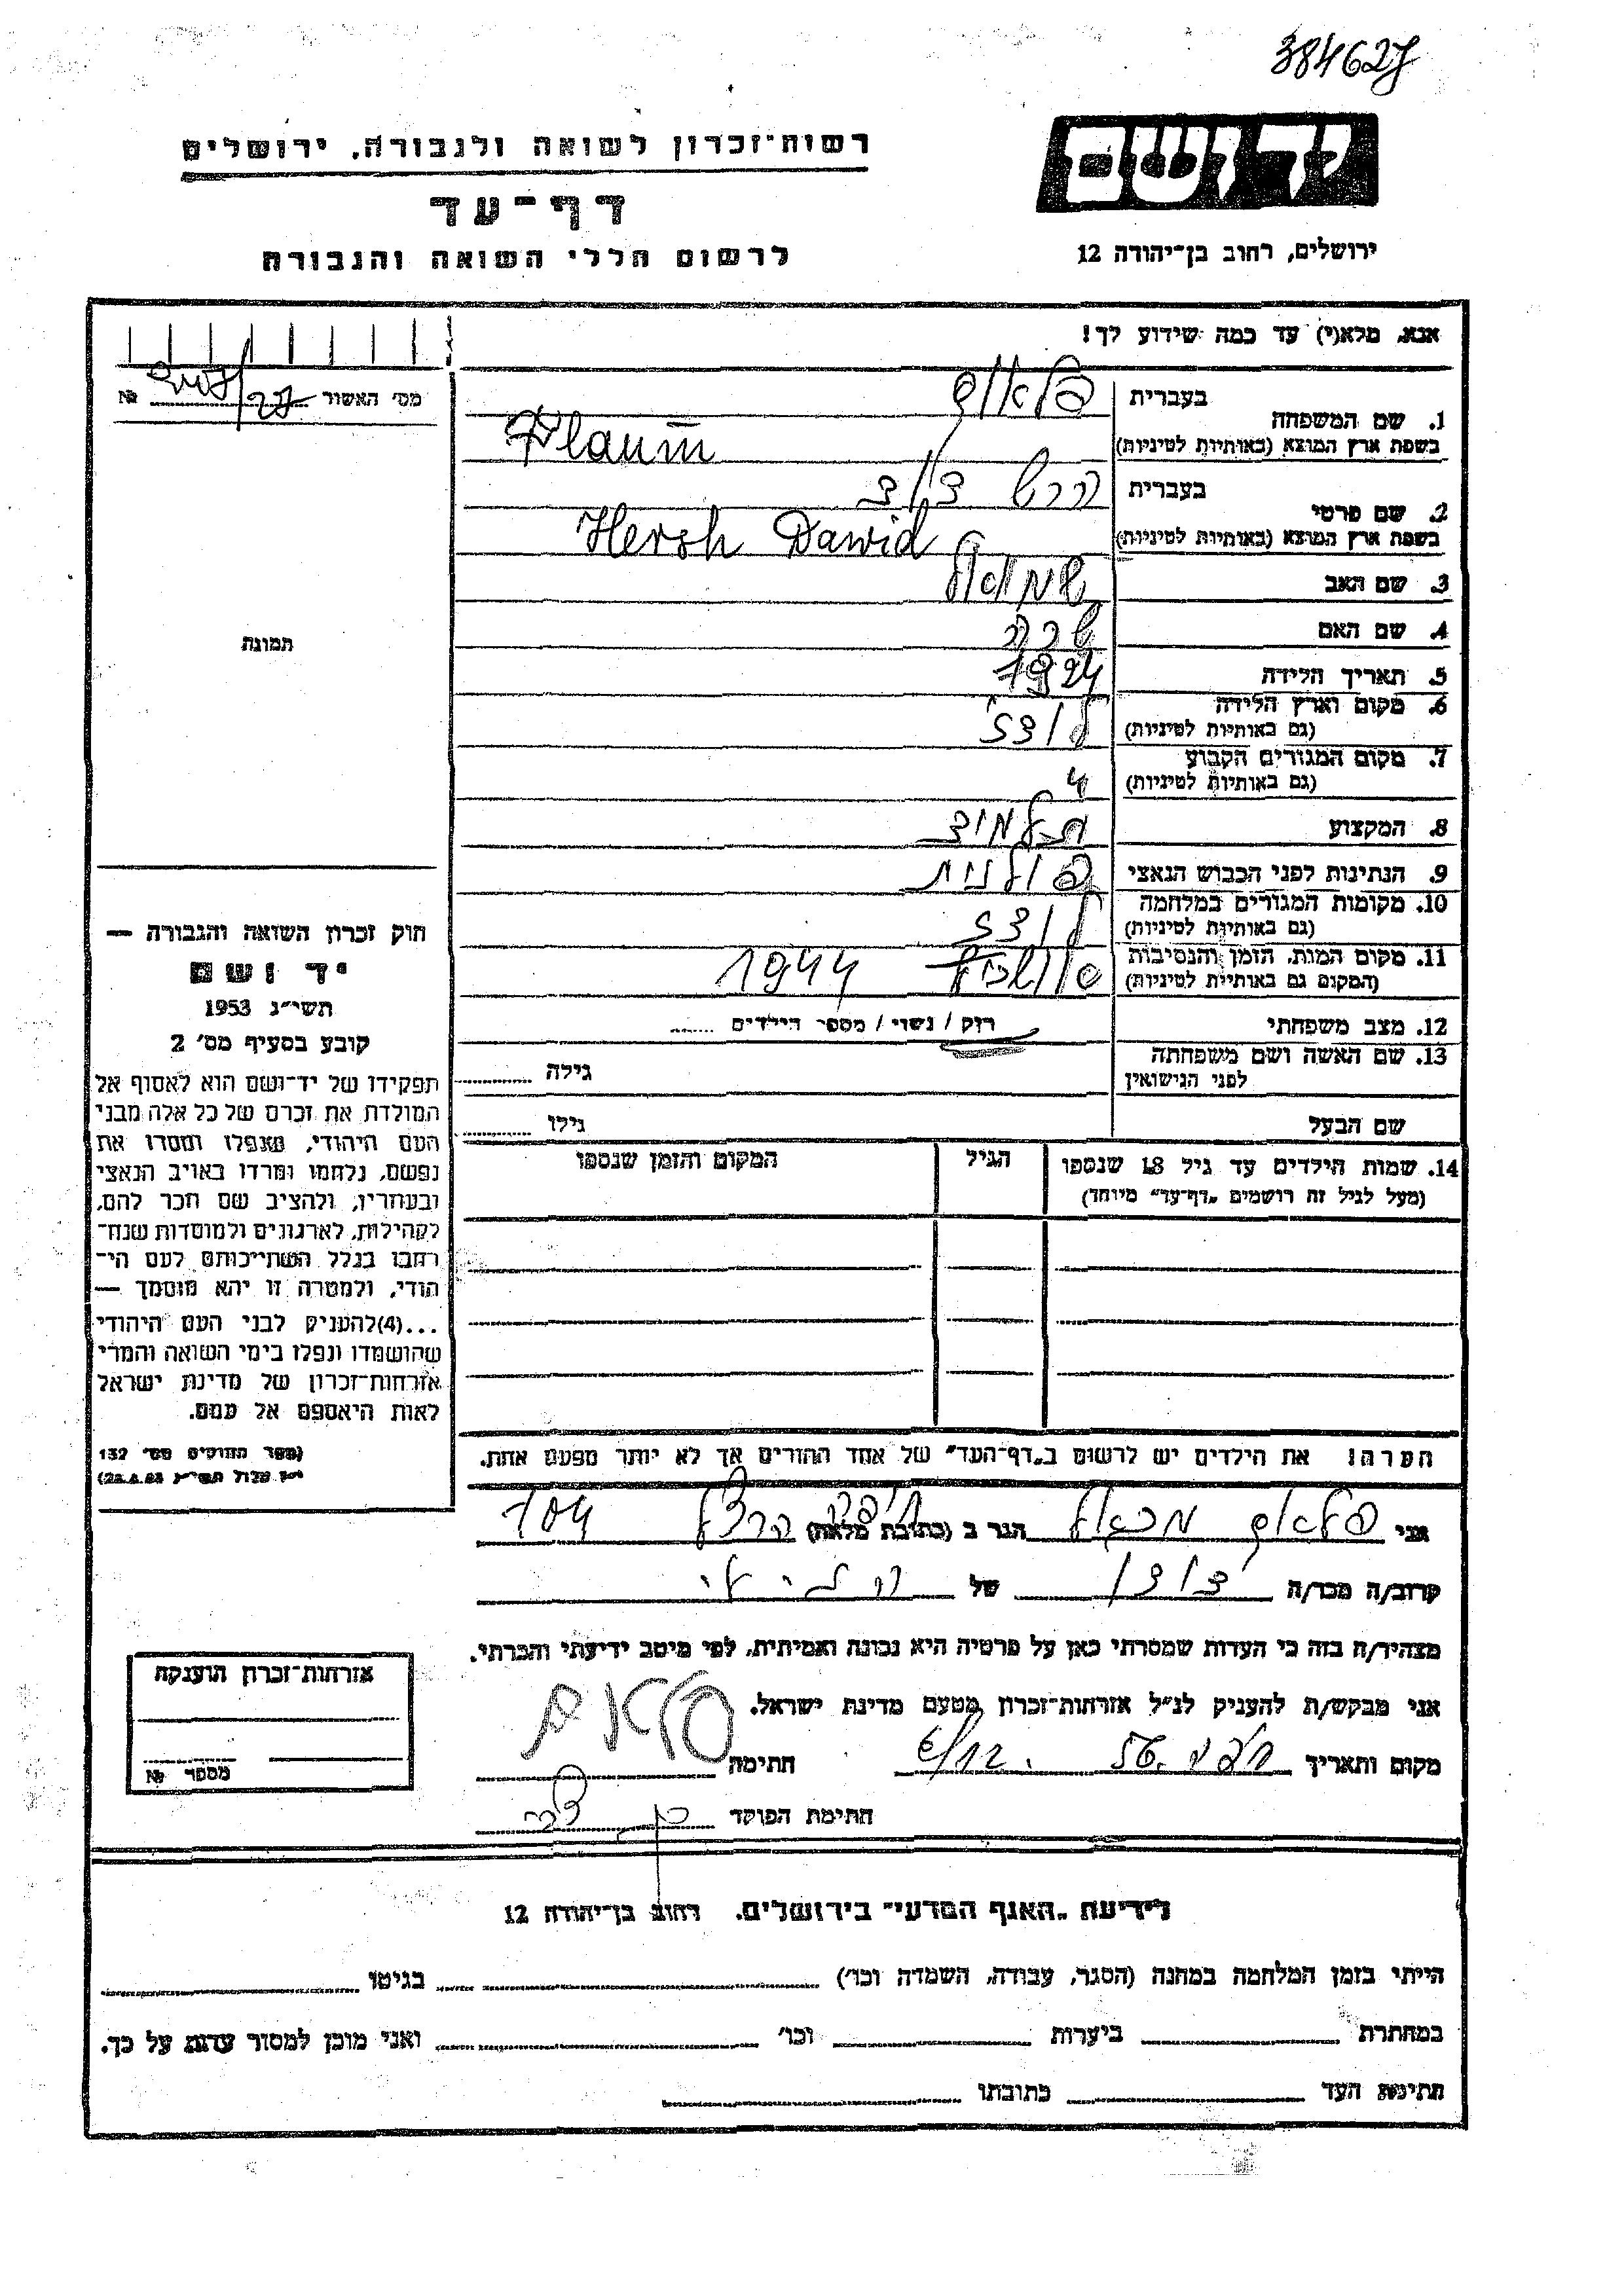 384627
רשות־זכרון לשואה ולגבורה, ירושלים
יד ושם
דף־עד
לרשום חללי השואה והגבורה
ירושלים, רחוב בן־יהודה 12
אנא, מלא(י) עד כמה שידוע לך!
מס׳ האשור 27 №
1. שם המשפחה
בעברית פלאום
בשפת ארץ המוצא (באותיות לטיניות) Plaum
2. שם פרטי
בעברית הרש דוד
בשפת ארץ המוצא (באותיות לטיניות) Hersh Dawid
3. שם האב שמואל
4. שם האם שרה
5. תאריך הלידה 1924
6. מקום וארץ הלידה
(גם באותיות לטיניות) לודז׳
7. מקום המגורים הקבוע
(גם באותיות לטיניות)
8. המקצוע תלמוד
9. הנתינות לפני הכבוש הנאצי פולנית
10. מקומות המגורים במלחמה
(גם באותיות לטיניות) לודז
11. מקום המות, הזמן והנסיבות
(המקום גם באותיות לטיניות) 1944
12. מצב משפחתי רוק / נשוי / מספר הילדים
13. שם האשה ושם משפחתה
לפני הנישואין גילה
שם הבעל גילו
14. שמות הילדים עד גיל 18 שנספו הגיל המקום והזמן שנספו
(מעל לגיל זה רושמים „דף־עד״ מיוחד)
הערה: את הילדים יש לרשום ב„דף־העד״ של אחד ההורים אך לא יותר מפעם אחת.
תמונה
חוק זכרון השואה והגבורה —
יד ושם
תשי״ג 1953
קובע בסעיף מס׳ 2
תפקידו של יד־ושם הוא לאסוף אל
המולדת את זכרם של כל אלה מבני
העם היהודי, שנפלו ומסרו את
נפשם, נלחמו ומרדו באויב הנאצי
ובעוזריו, ולהציב שם וזכר להם,
לקהילות, לארגונים ולמוסדות שנח־
רבו בגלל השתייכותם לעם הי־
הודי, ולמטרה זו יהא מוסמך —
...(4)להעניק לבני העם היהודי
שהושמדו ונפלו בימי השואה והמרי
אזרחות־זכרון של מדינת ישראל
לאות היאספם אל עמם.
(ספר החוקים מס׳ 132
אני פלאום מכאל הגר ב (כתובת מלאה) חיפה הרצל 104
קרוב/ה מכר/ה דודו של
מצהיר/ה בזה כי העדות שמסרתי כאן על פרטיה היא נכונה ואמיתית, לפי מיטב ידיעתי והכרתי.
אני מבקש/ת להעניק לנ״ל אזרחות־זכרון מטעם מדינת ישראל.
מקום ותאריך 56. חתימה פלאום
חתימת הפוקד
אזרחות־זכרון הוענקה
מספר №
לידיעת „האגף המדעי״ בירושלים, רחוב בן־יהודה 12
הייתי בזמן המלחמה במחנה (הסגר, עבודה, השמדה וכו׳) בגיטו
במחתרת ביערות וכו׳ ואני מוכן למסור עדות על כך.
חתימת העד כתובתו